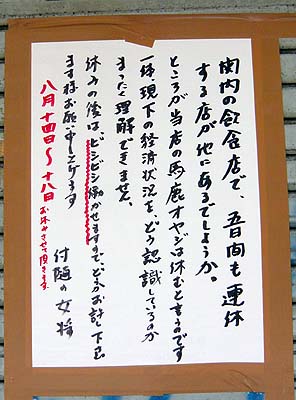 関内の飲食店で、五日間も連休
する店が他にあるでしょうか。
ところが当店の馬鹿オヤジは休むと言うのです
一体、現下の経済状況を、どう認識しているのか
まったく理解できません。
休みの後は、ビシビシ働かせますので、どうかお許し下さい
ます様お願い申し上げます
付随の女将
八月十四日〜十八日お休みさせて頂きます。